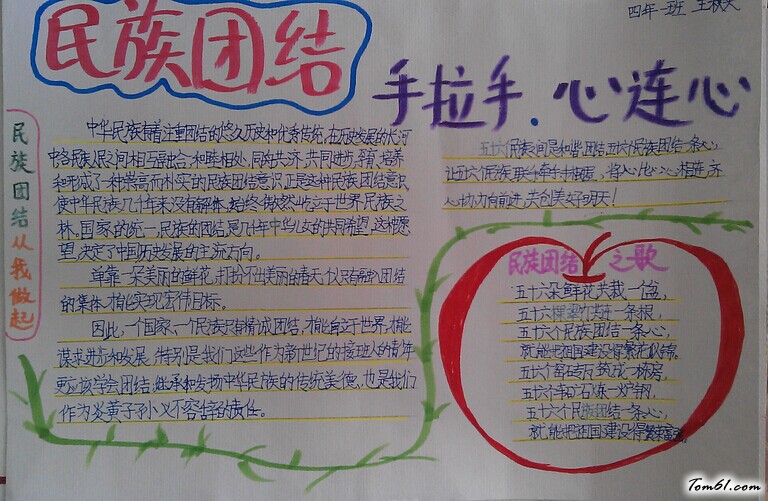 四年一班
民族团结
手拉手.心连心
民族团结从我做起
中华民族有着注重团结的悠久历史和优秀传统,在历史发展的长河
中各民族人民之间相互融合,和睦相处,同舟共济,共同进步,孕育,培养
和形成了一种崇高而朴实的民族团结意识,正是这种民族团结意识
使中华民族几千年来没有解体,始终傲然屹立于世界民族之
林。国家的统一,民族的团结是几千年中华儿女的共同希望,这种愿
望,决定了中国历史发展的主流方向。
单靠一朵美丽的鲜花,打扮不出美丽的春天,仅只有融入团结
的集体,才能实现宏伟目标。
因此,一个国家、一个民族只有精诚团结,才能自立于世界,才能
谋求进步和发展,特别是我们这些作为新世纪的接班人的青少年
更应该学会团结,继承和发扬中华民族的传统美德,也是我们
作为炎黄子孙义不容辞的责任。
五十六个民族间是和谐团结五十六个民族团结一条心,
让五十六个民族联合牵手
心协力向前进,共创美好明天!
民族团结之歌
五十六朵鲜花共栽一个盆,
五十六棵共一条根,
五十六个民族团结一条心,
就能把祖国建设得繁花似锦。
五十六个筑成一栋房,
五十六车矿石炼一炉钢,
五十六个民族团结一条心,
就能把祖国建设得繁荣富强。
Tom61.com